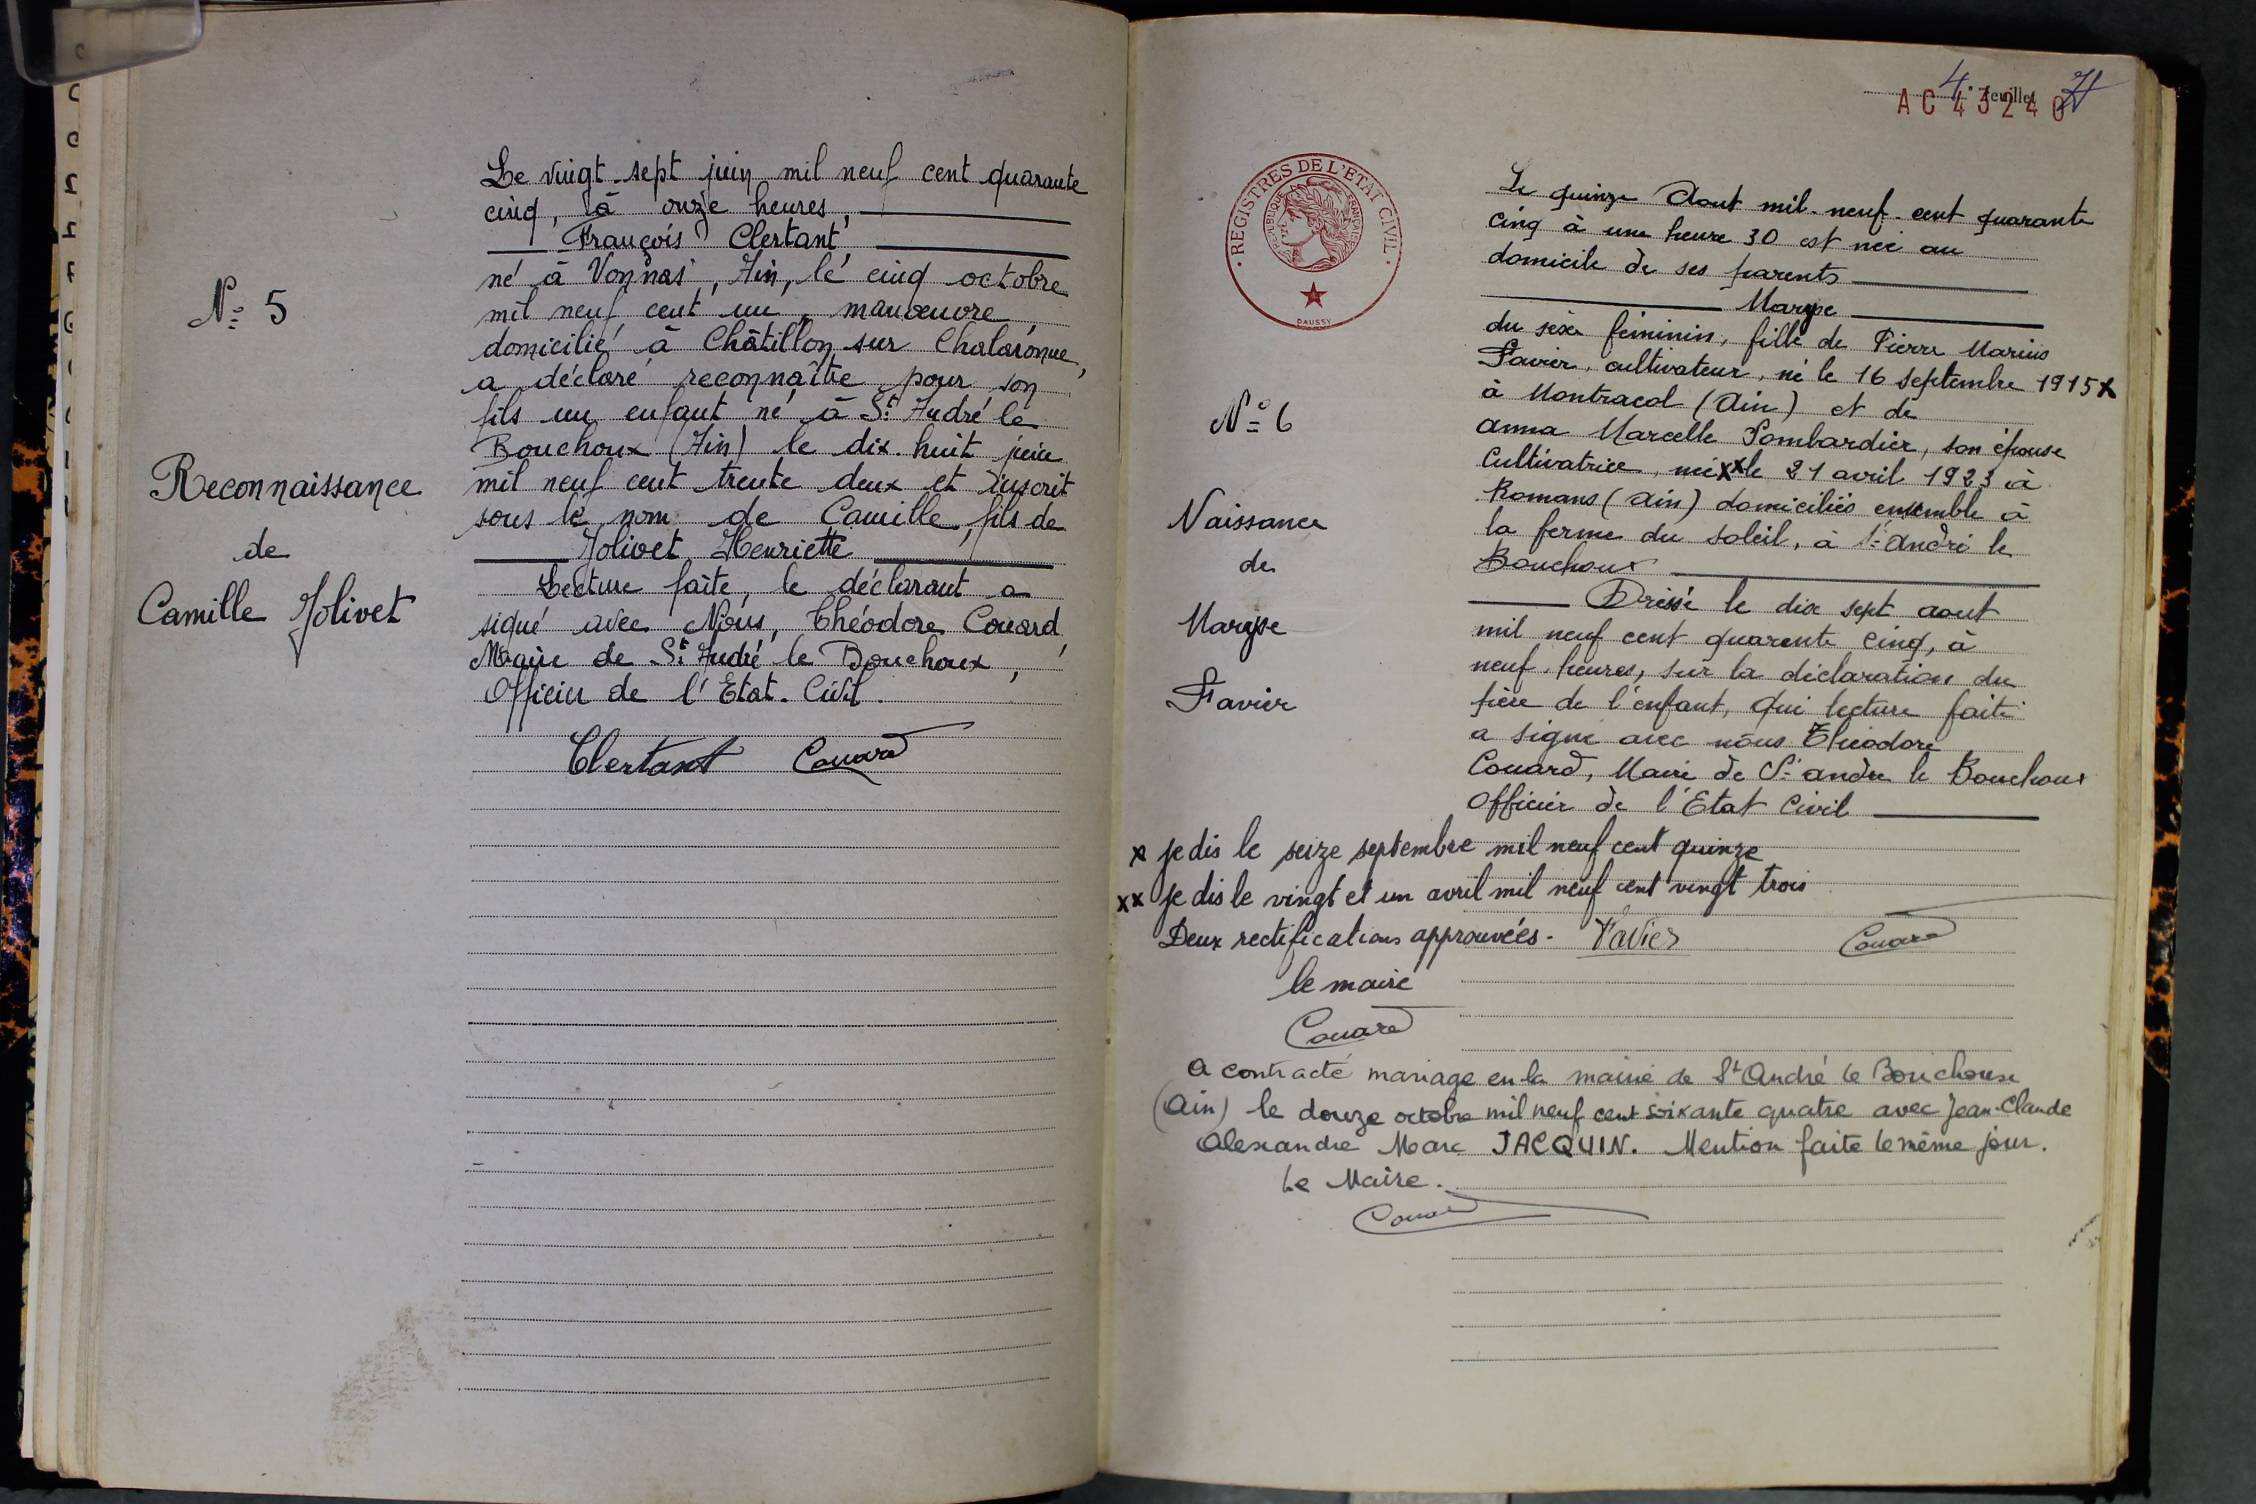 N° 5
Reconnaissance
de
Camille Jolivet
Le vingt-sept juin mil neuf cent quarante
cinq, à onze heures,
François Clertant
né à Vonnas, Ain, le cinq octobre
mil neuf cent un, manœuvre,
domicilié à Châtillon sur Chalaronne,
a déclaré reconnaître pour son
fils un enfant né à St André le
Bouchoux (Ain) le dix-huit juin
mil neuf cent trente deux et inscrit
sous le nom de Camille, fils de
Jolivet Henriette
Lecture faite, le déclarant a
signé avec Nous, Théodore Couard,
Maire de St André le Bouchoux,
Officier de l'Etat-Civil.
Clertant Couard
4e feuillet
AC 43240
REGISTRES DE L'ETAT CIVIL
REPUBLIQUE FRANÇAISE
DAUSSY
N° 6
Naissance
de
Maryse
Favier
Le quinze Aout mil-neuf-cent quarante
cinq à une heure 30 est née au
domicile de ses parents
Maryse
du sexe féminin, fille de Pierre Marius
Favier, cultivateur, né le 16 septembre 1915 x
à Montracol (Ain) et de
Anna Marcelle Pombardier, son épouse
Cultivatrice, née xx le 21 avril 1923 à
Romans (Ain) domiciliés ensemble à
la ferme du soleil, à St André le
Bouchoux
Dressé le dix sept aout
mil neuf cent quarente cinq, à
neuf heures, sur la déclaration du
père de l'enfant, qui lecture faite
a signé avec nous Théodore
Couard, Maire de St André le Bouchoux
Officier de l'Etat Civil
x je dis le seize septembre mil neuf cent quinze
xx je dis le vingt et un avril mil neuf cent vingt trois
Deux rectifications approuvées - Favier Couard
le maire
Couard
A contracté mariage en la mairie de St André le Bouchoux
(Ain) le douze octobre mil neuf cent soixante quatre avec Jean-Claude
Alexandre Marc JACQUIN. Mention faite le même jour.
Le Maire.
Couard